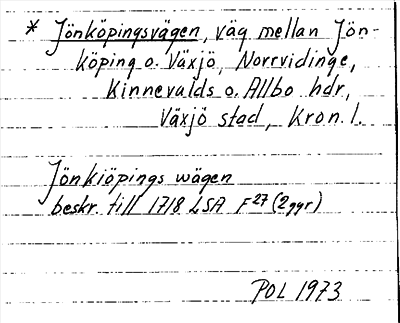 * Jönköpingsvägen, väg mellan Jön-
köping o. Växjö, Norrvidinge,
Kinnevalds o. Allbo hdr,
Växjö stad, Kron. l.
Jönkiöpings wägen
beskr. till 1718 LSA F27 (2ggr)
POL 1973